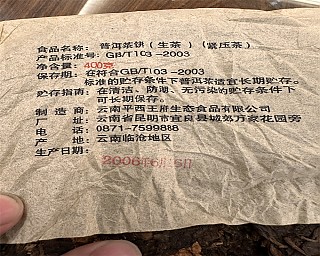 食品名称：普洱茶饼（生茶）（紧压茶）
产品标准号：GB/T103-2003
净含量：400克
保存期：在符合GB/T103-2003
标准的贮存条件下普洱茶适宜长期贮存。
贮存指南：在清洁、防潮、无污染的贮存条件下
可长期贮存。
制造商：云南平西王府生态食品有限公司
厂址：云南省昆明市宜良县城郊万家花园旁
电话：0871-7599888
产地：云南临沧地区
生产日期：
2006年6月16日